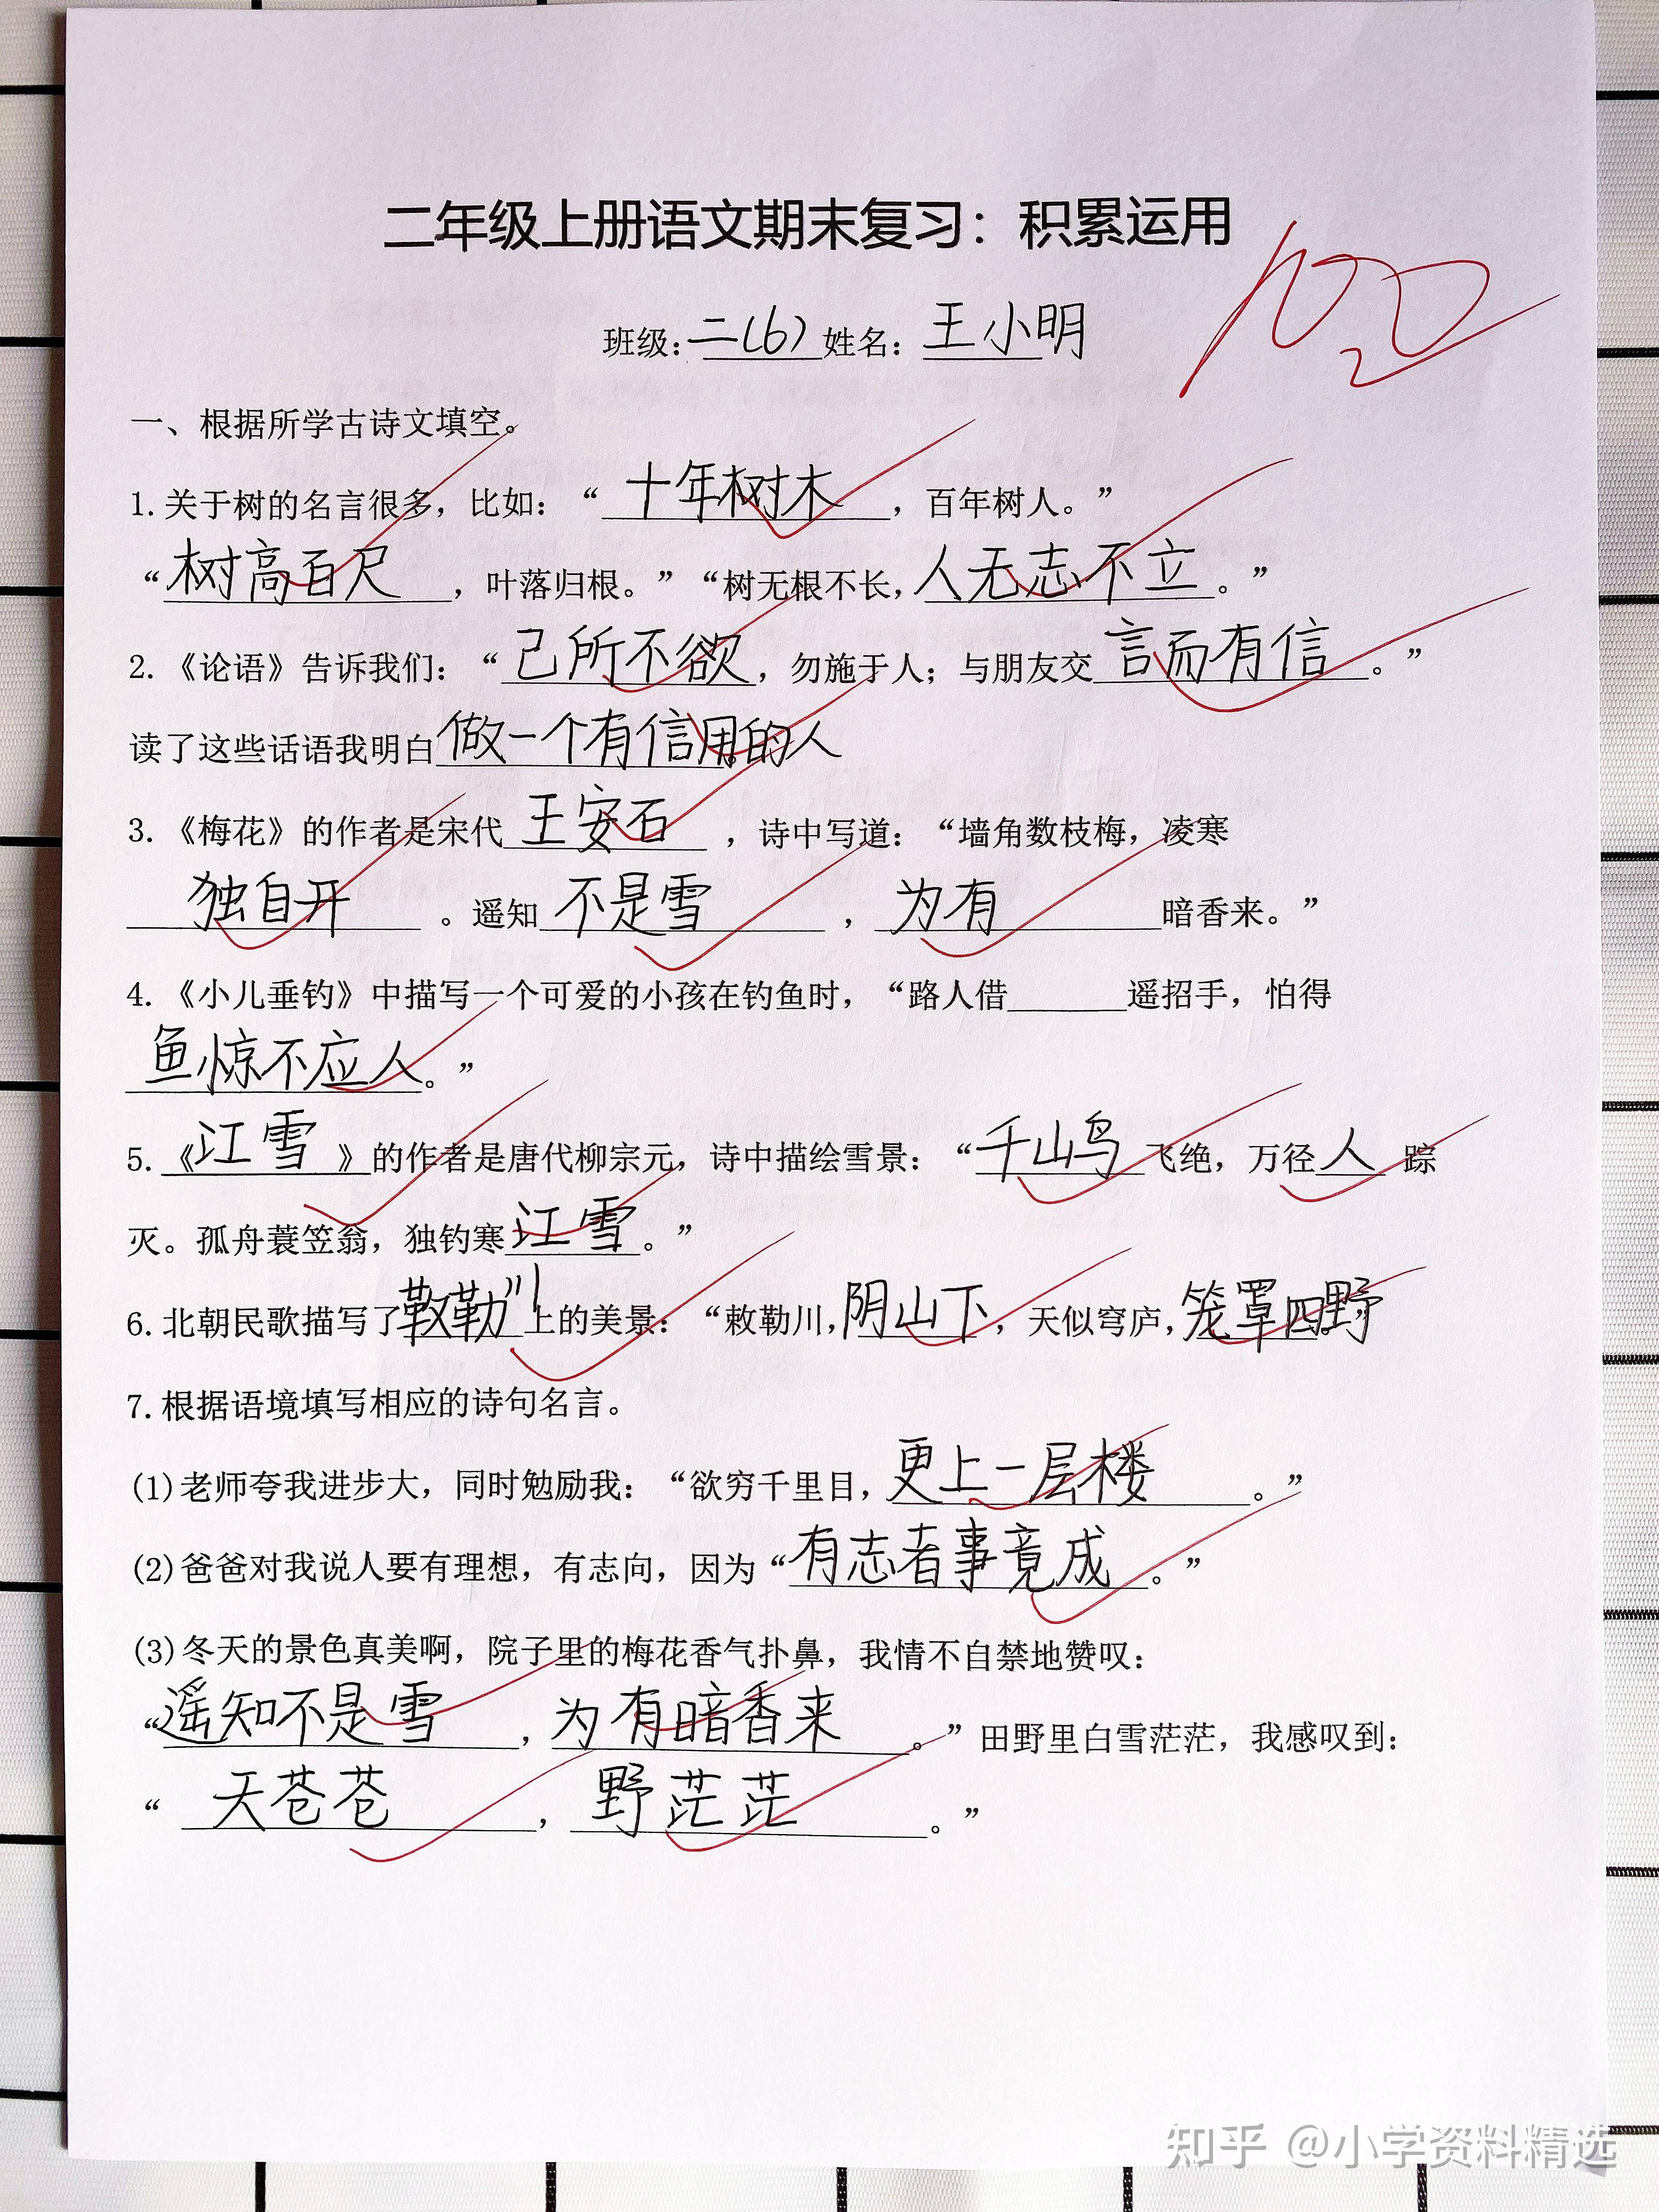 二年级上册语文期末复习：积累运用
100
班级：二(6) 姓名：王小明
一、根据所学古诗文填空。
1.关于树的名言很多，比如：“十年树木，百年树人。”
“树高百尺，叶落归根。”“树无根不长，人无志不立。”
2.《论语》告诉我们：“己所不欲，勿施于人；与朋友交言而有信。”
读了这些话语我明白做一个有信用的人。
3.《梅花》的作者是宋代王安石，诗中写道：“墙角数枝梅，凌寒
独自开。遥知不是雪，为有暗香来。”
4.《小儿垂钓》中描写一个可爱的小孩在钓鱼时，“路人借______遥招手，怕得
鱼惊不应人。”
5.《江雪》的作者是唐代柳宗元，诗中描绘雪景：“千山鸟飞绝，万径人踪
灭。孤舟蓑笠翁，独钓寒江雪。”
6.北朝民歌描写了敕勒川上的美景：“敕勒川，阴山下，天似穹庐，笼罩四野。”
7.根据语境填写相应的诗句名言。
(1)老师夸我进步大，同时勉励我：“欲穷千里目，更上一层楼。”
(2)爸爸对我说人要有理想，有志向，因为“有志者事竟成。”
(3)冬天的景色真美啊，院子里的梅花香气扑鼻，我情不自禁地赞叹：
“遥知不是雪，为有暗香来。”田野里白雪茫茫，我感叹到：
“天苍苍，野茫茫。”
知乎 @小学资料精选